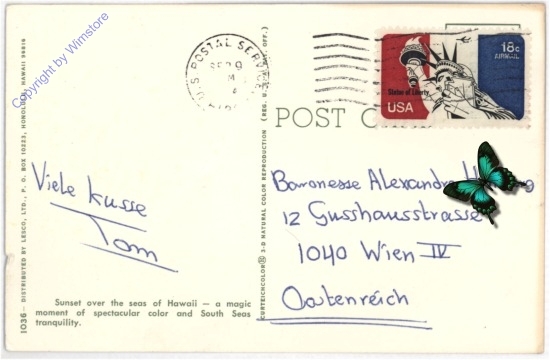 Copyright by Wimstore
U.S. POSTAL SERVICE
18c
AIRMAIL
Statue of Liberty
USA
POST
Viele Kusse
Tom
Baronesse Alexandra
12 Gusshausstrasse
1040 Wien IV
Oesterreich
Sunset over the seas of Hawaii — a magic
moment of spectacular color and South Seas
tranquility.
1036 — DISTRIBUTED BY LESCO, LTD., P. O. BOX 10223, HONOLULU, HAWAII 96816
CURTEICHCOLOR® 3-D NATURAL COLOR REPRODUCTION (REG. U.S.A. PAT. OFF.)